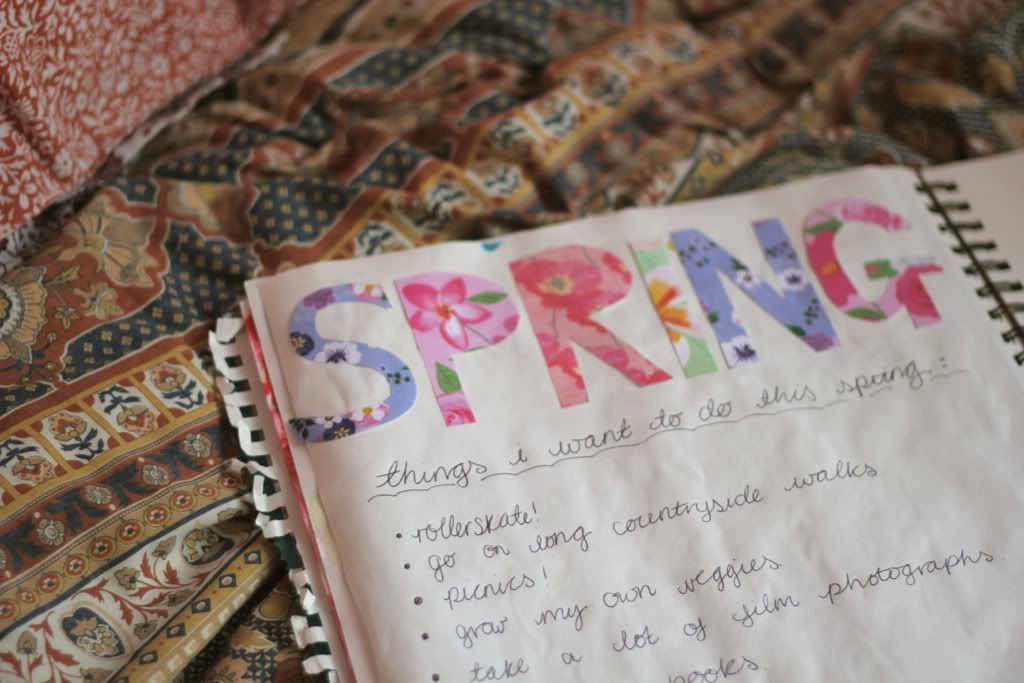 SPRING
things i want to do this spring:
• rollerskate!
• go on long countryside walks
• picnics!
• grow my own veggies.
• take a lot of film photographs.
books.